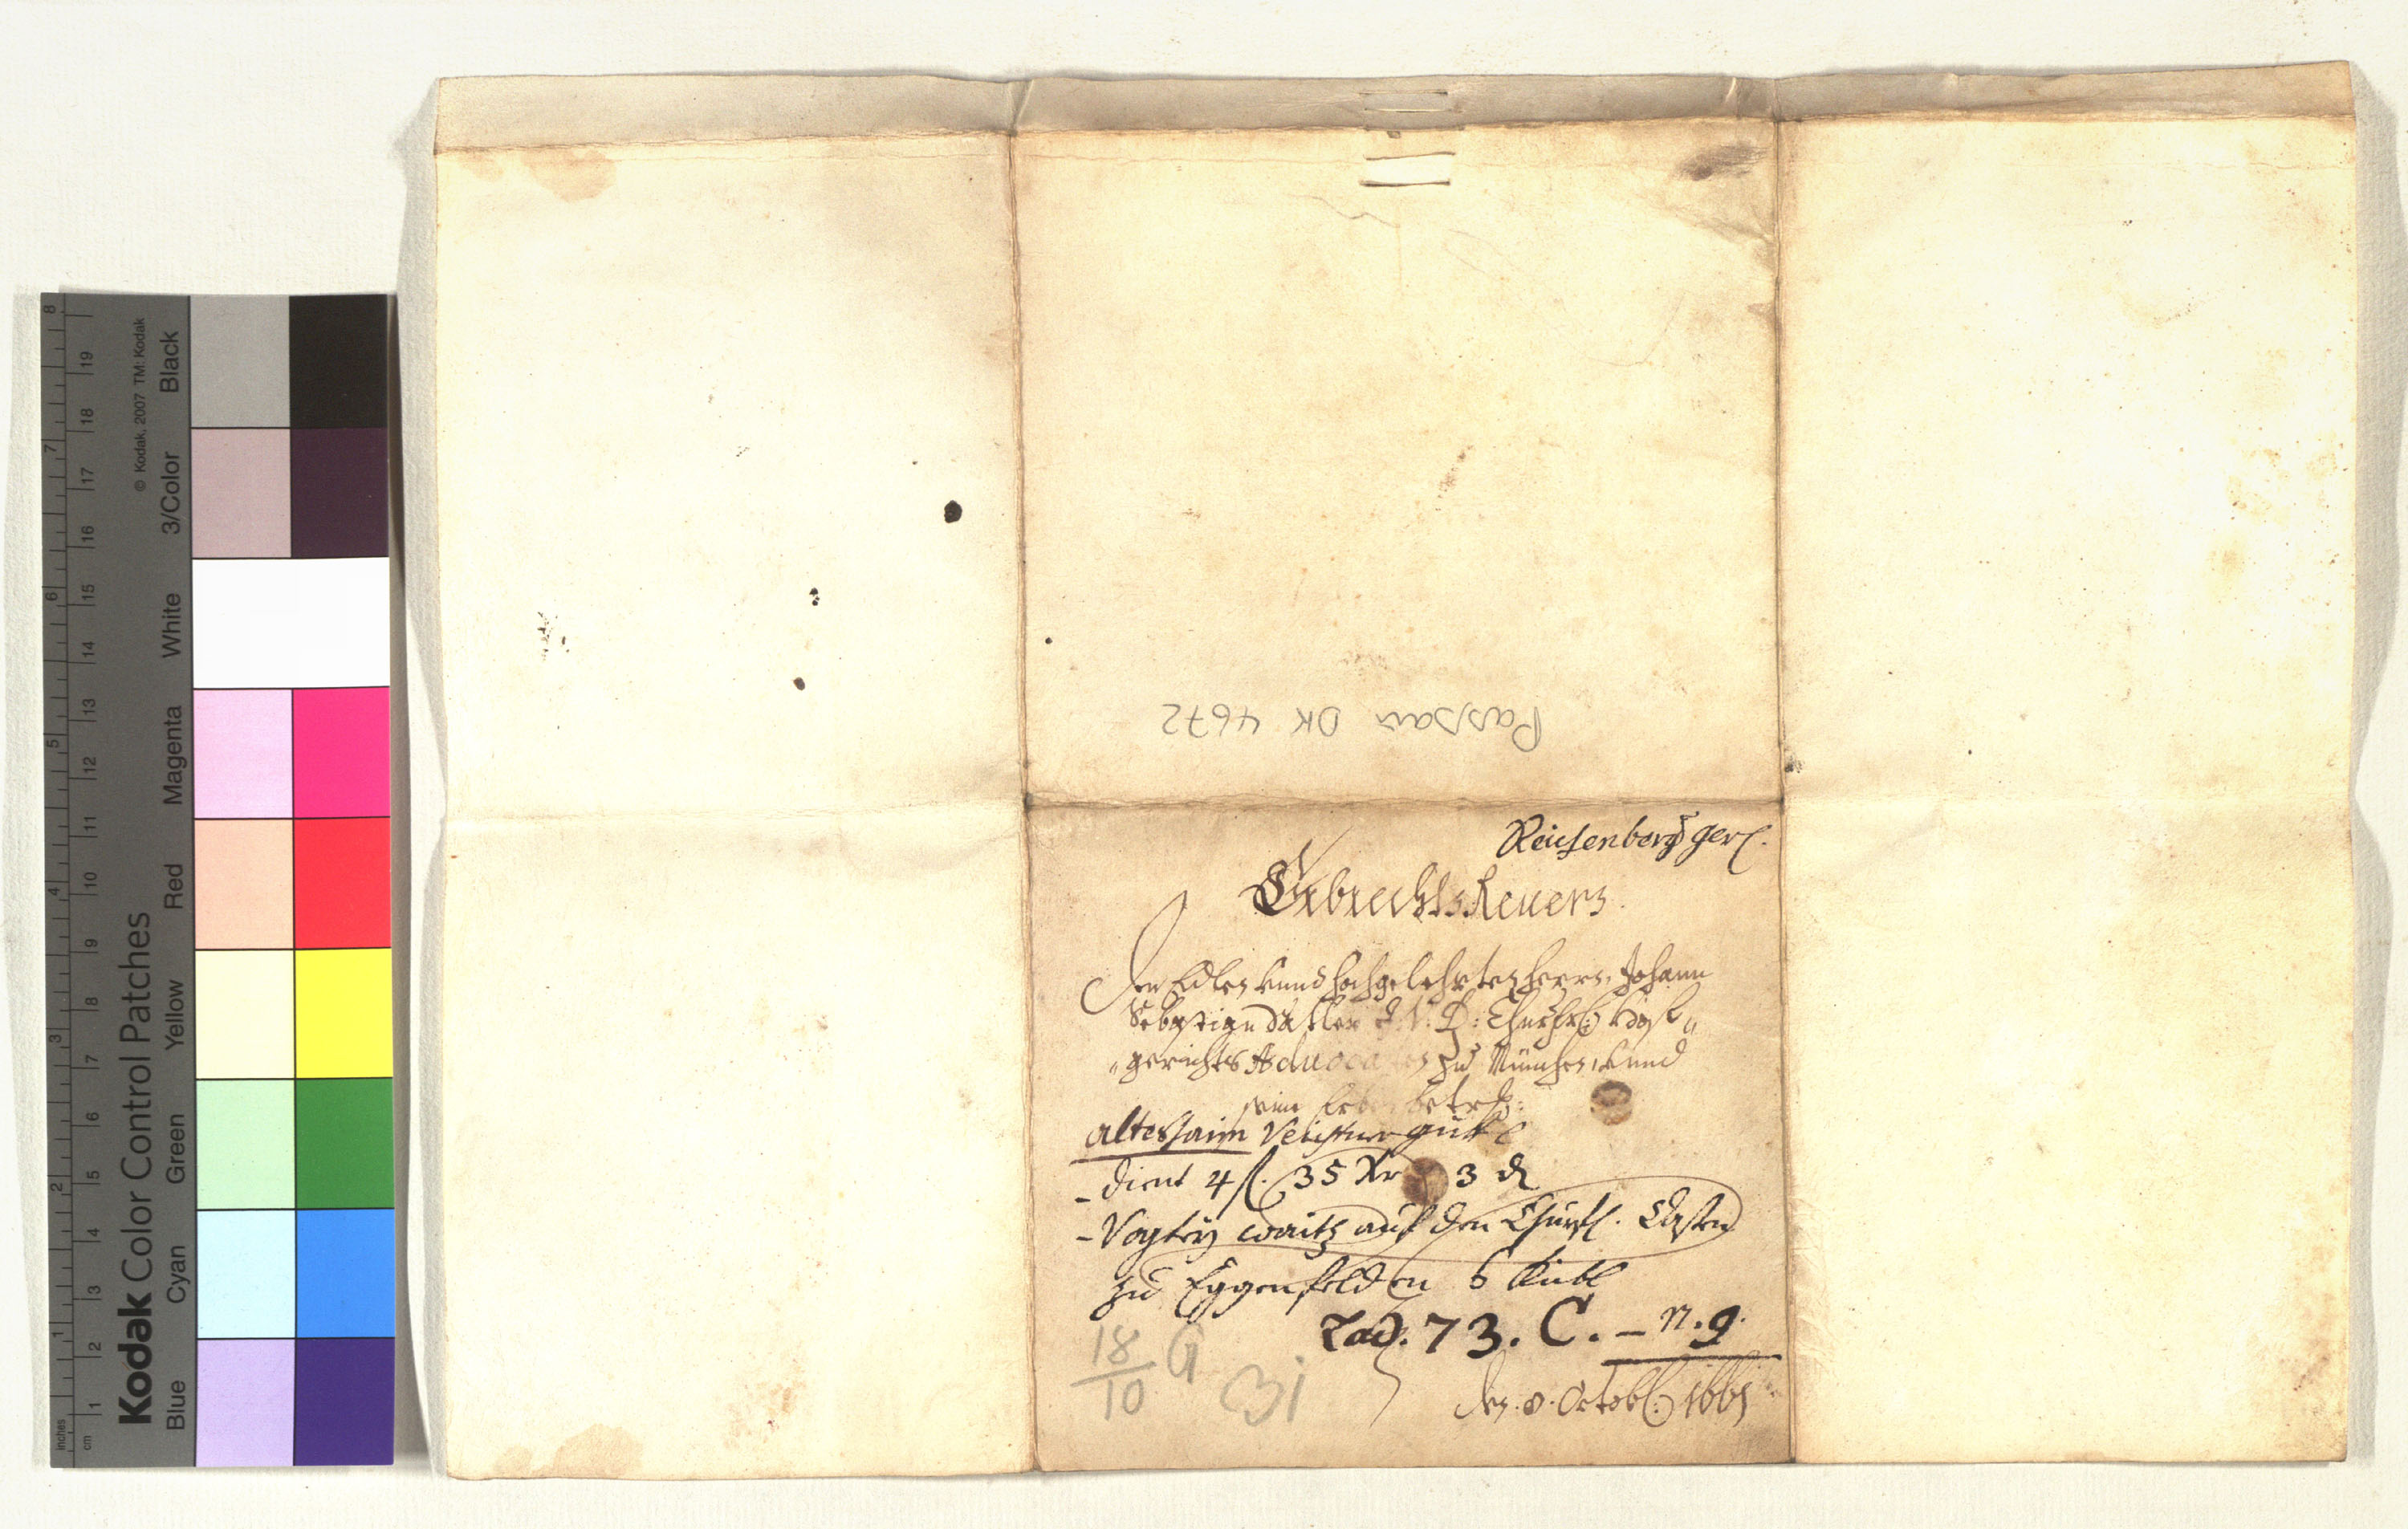 Passau DK 4672
Reichenberg ger.
Erbrechts Reuers.
Den Edlen vnnd hochgelehrten herrn, Johann
Sebastian J. V. D: Churfrl: Hof„
„gerichts Aduocaten zu München, vnnd
sein Erben betr:
dient 4 fl. 35 Xr 3 d
- Vogtey waitz auf den Churfl. Casten
zu Eggenfelden 6 Kübl
Lad. 73. C. – n. 9.
18
10
G
31
den. 8. Octob: 1661
Kodak Color Control Patches
© Kodak, 2007 TM: Kodak
Blue Cyan Green Yellow Red Magenta White 3/Color Black
inches 1 2 3 4 5 6 7 8
cm 1 2 3 4 5 6 7 8 9 10 11 12 13 14 15 16 17 18 19